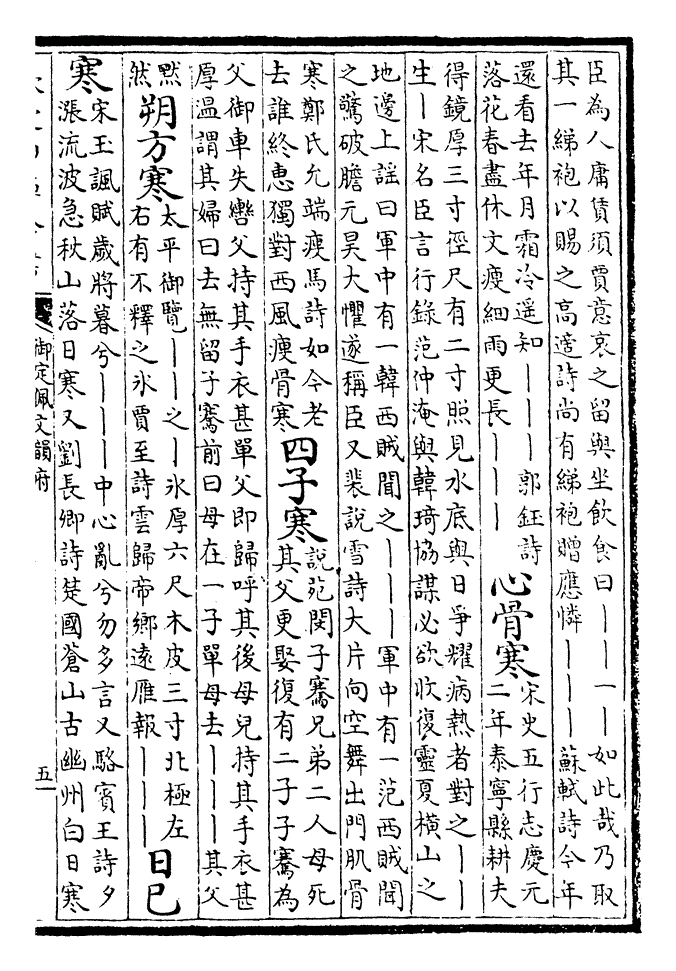 臣為人庸賃須賈意哀之留與坐飲食曰｜｜一｜如此哉乃取
其一綈袍以賜之高適詩尚有綈袍贈應憐｜｜｜蘇軾詩今年
還看去年月霜冷遥知｜｜｜郭鈺詩
落花春盡休文瘦細雨更長｜｜｜
心骨寒
宋史五行志慶元
二年泰寧縣耕夫
得鏡厚三寸徑尺有二寸照見水底與日爭耀病熱者對之｜｜
生｜宋名臣言行錄范仲淹與韓琦協謀必欲收復靈夏横山之
地邊上謡曰軍中有一韓西賊聞之｜｜｜軍中有一范西賊聞
之驚破膽元昊大懼遂稱臣又裴說雪詩大片向空舞出門肌骨
寒鄭氏允端瘦馬詩如今老
去誰終惠獨對西風瘦骨寒
四子寒
說苑閔子騫兄弟二人母死
其父更娶復有二子子騫為
父御車失轡父持其手衣甚單父即歸呼其後母兒持其手衣甚
厚温謂其婦曰去無留子騫前曰母在一子單母去｜｜｜其父
黙
然
朔方寒
太平御覽｜｜之｜氷厚六尺木皮三寸北極左
右有不釋之氷賈至詩雲歸帝鄉遠雁報｜｜｜
日已
寒
宋玉諷賦歲將暮兮｜｜｜中心亂兮勿多言又駱賓王詩夕
漲流波急秋山落日寒又劉長卿詩楚國蒼山古幽州白日寒
御定佩文韻府
五